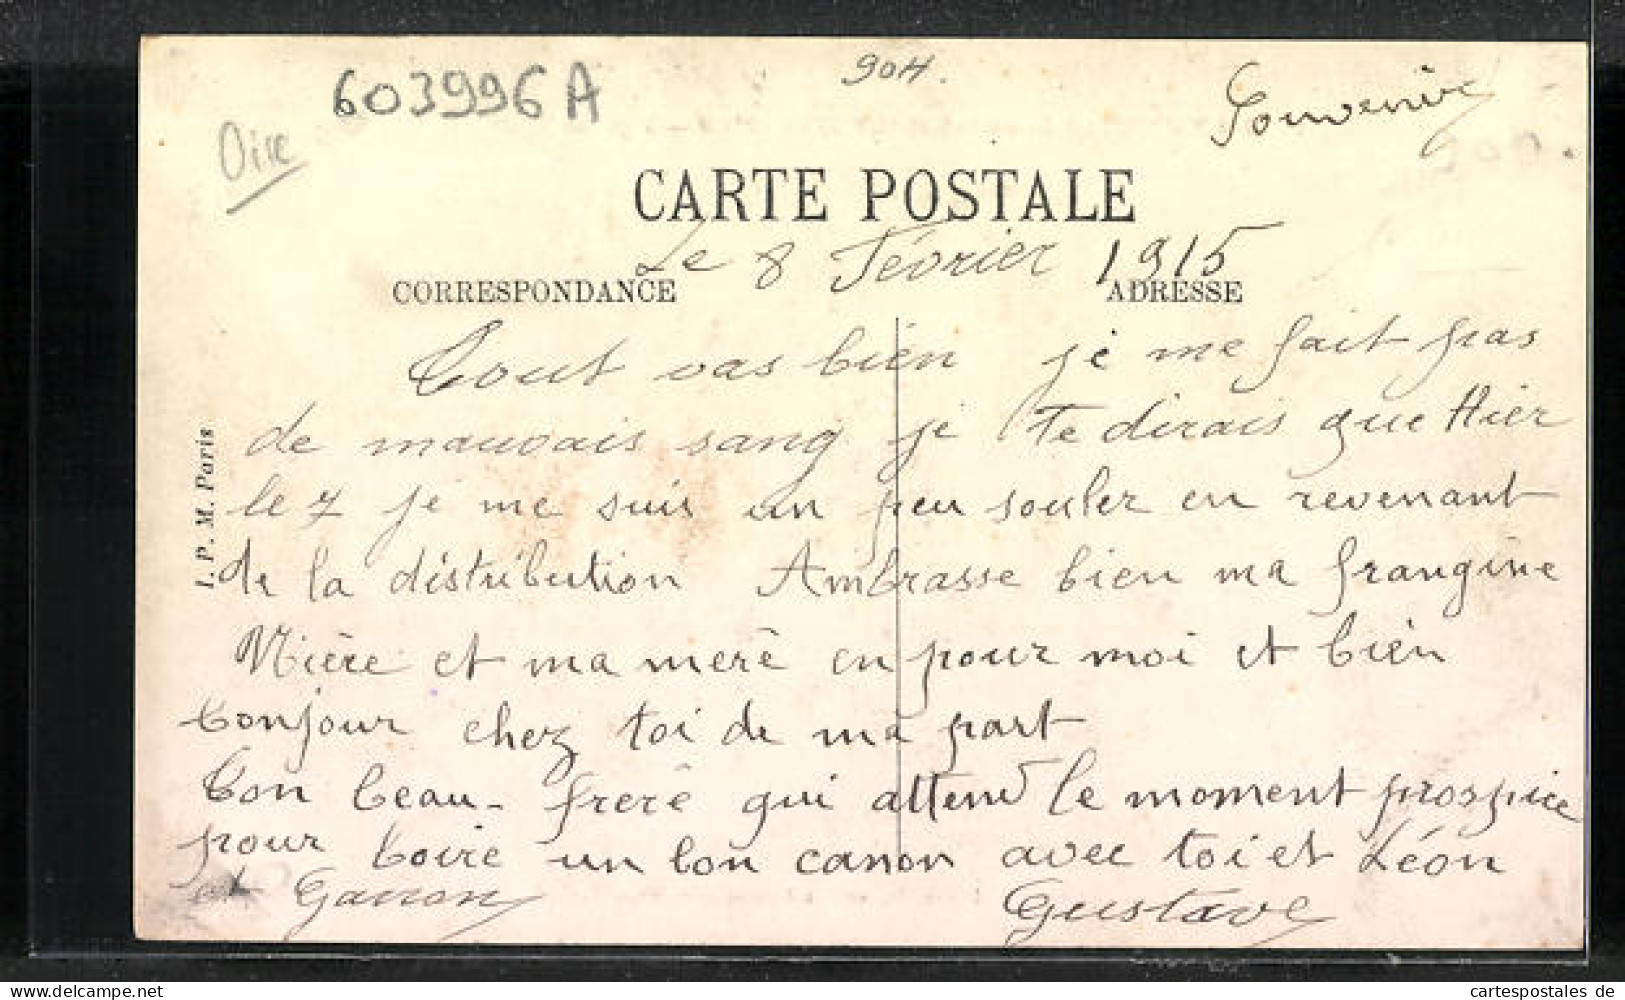 904.
603996A
Oise
Souvenir
CARTE POSTALE
Le 8 Février 1915
CORRESPONDANCE
ADRESSE
Tout vas bien je me fait pas
de mauvais sang je te dirais que Hier
le 7 je me suis un peu souler en revenant
de la distribution Ambrasse bien ma frangine
et ma mere en pour moi et bien
bonjour chez toi de ma part
Ton beau-frere qui attend le moment prospice
pour boire un bon canon avec toi et Léon
et
Gustave
I. P. M. Paris
cartespostales de